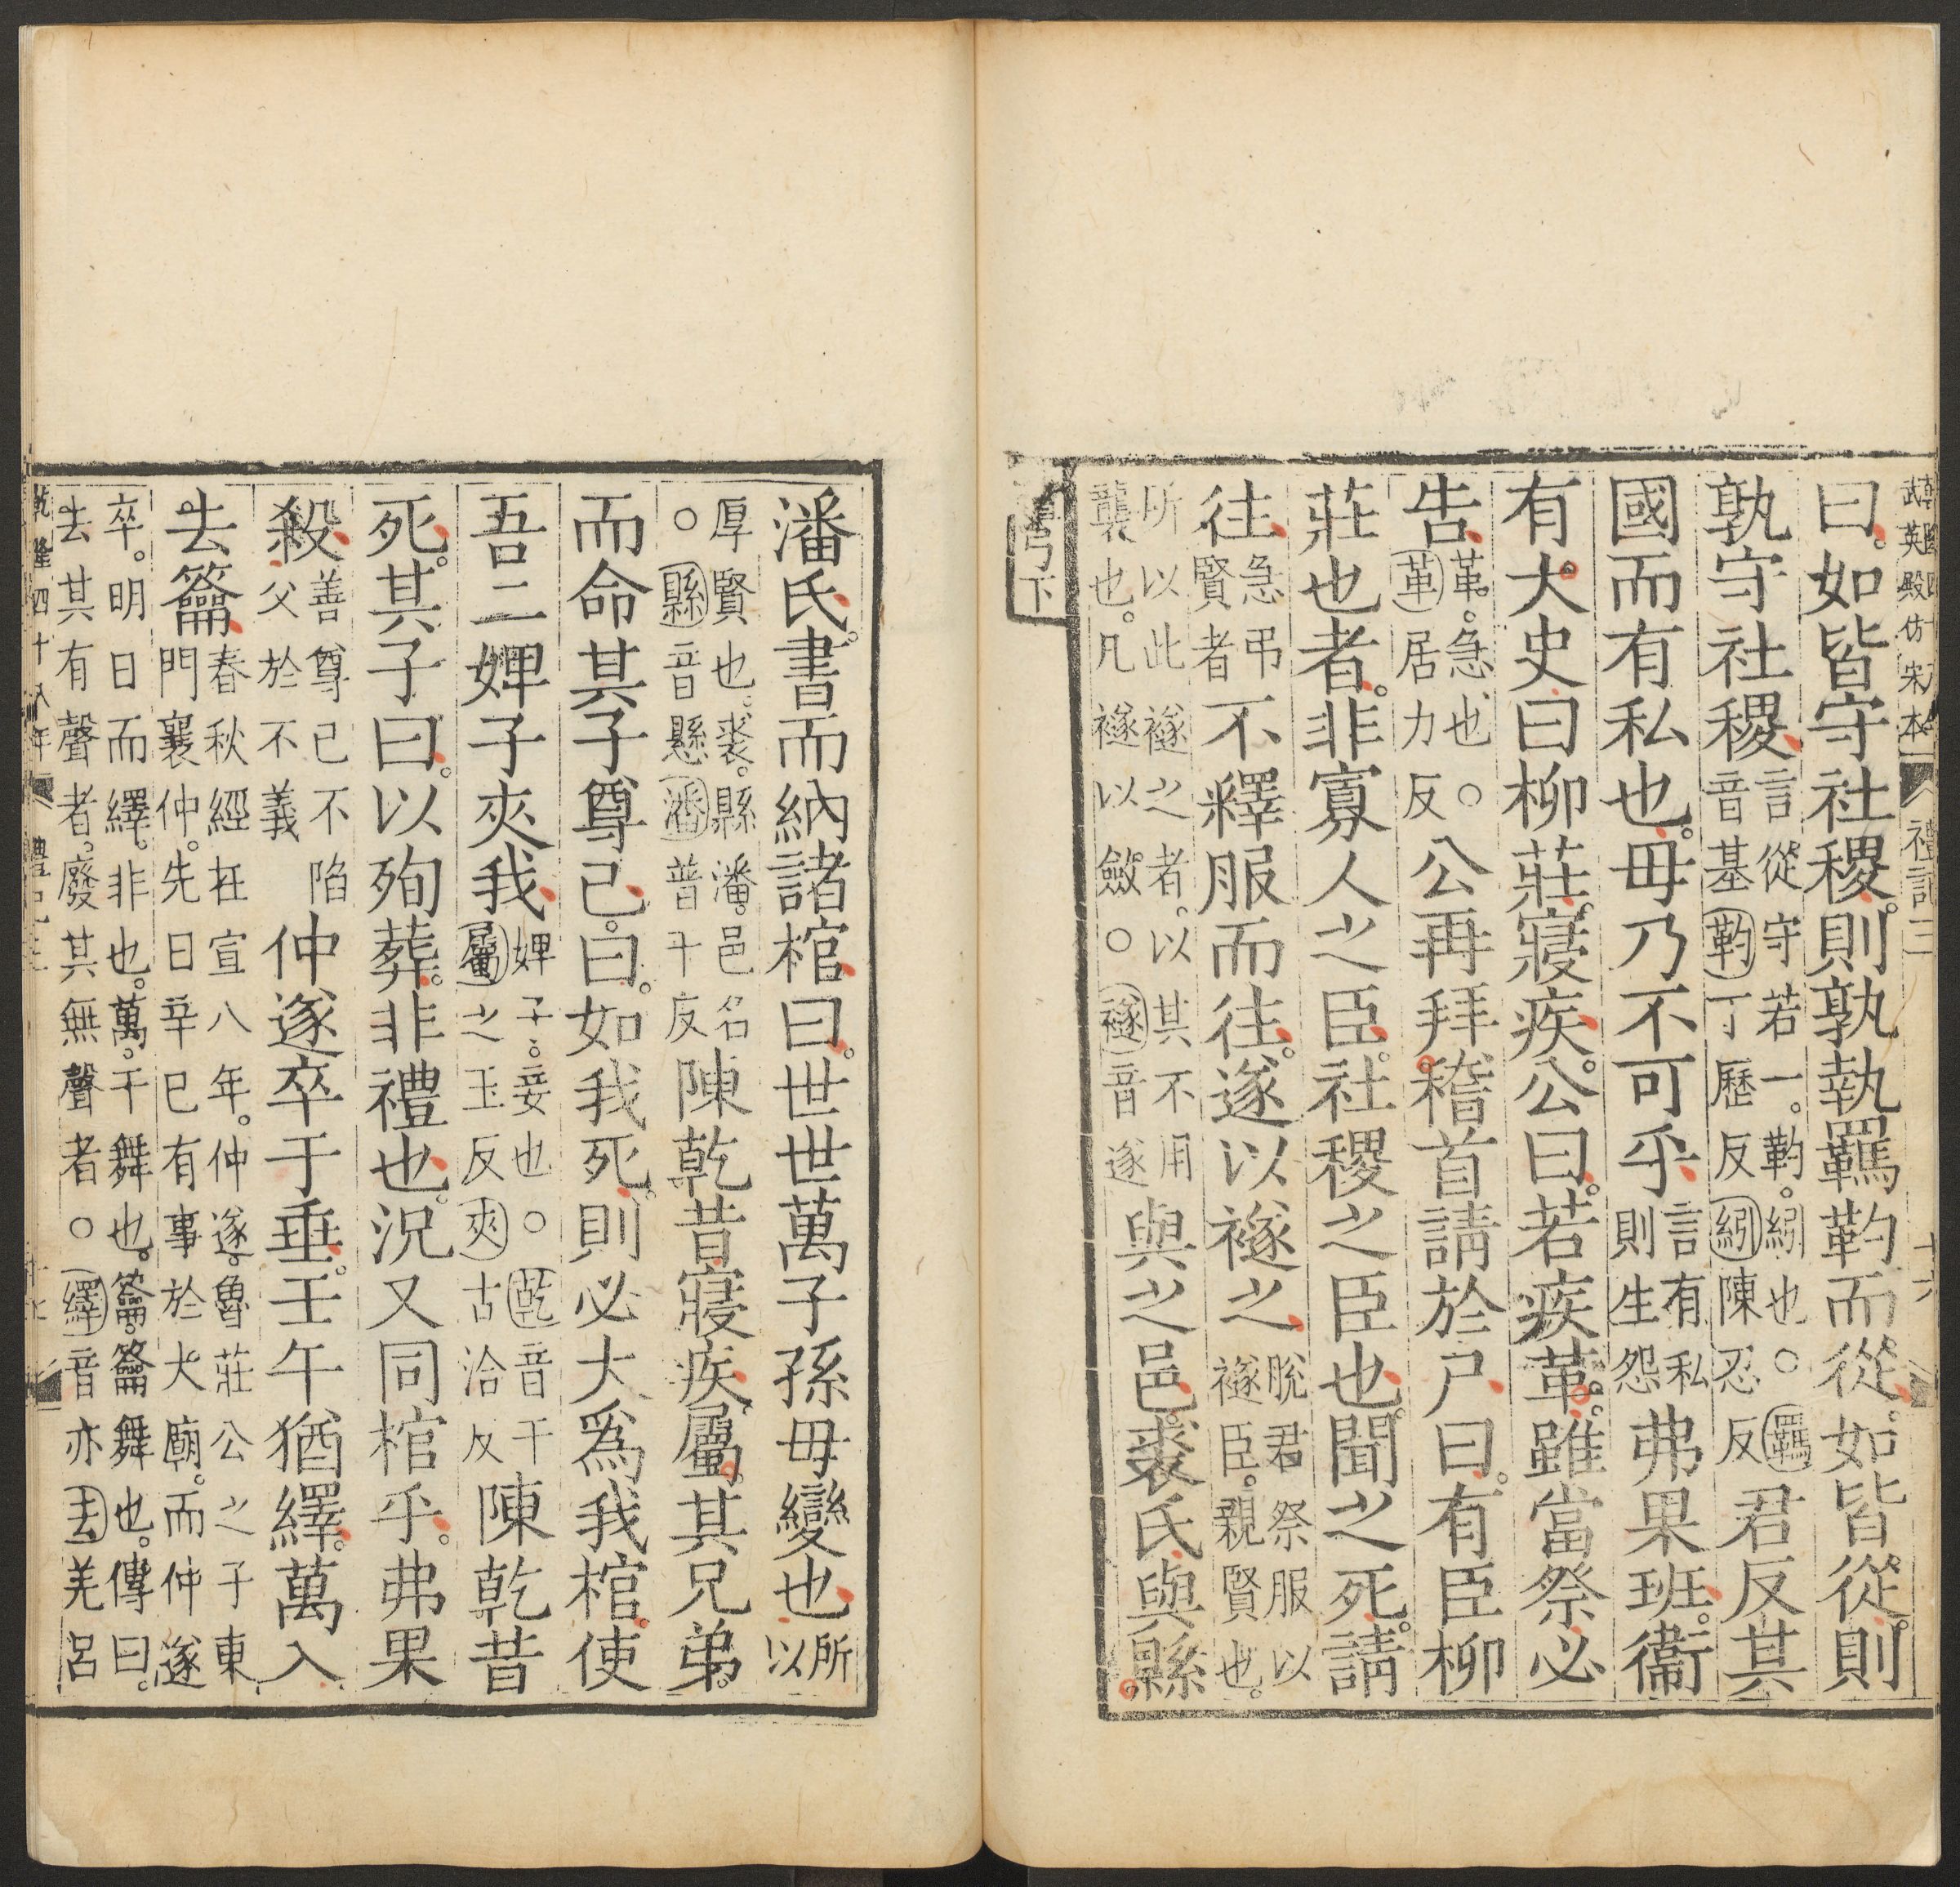 武英殿仿宋本 禮記三 十六
曰如皆守社稷則孰執羈靮而從如皆從則
孰守社稷言從守若一靮紖也○羈音基靮丁歷反紖陳忍反君反其
國而有私也毋乃不可乎言有私則生怨弗果班衞
有大史曰柳莊寢疾公曰若疾革雖當祭必
告革急也○革居力反公再拜稽首請於尸曰有臣柳
莊也者非寡人之臣社稷之臣也聞之死請
往急弔賢者不釋服而往遂以襚之脫君祭服以襚臣親賢也
所以此襚之者以其不用襲也凡襚以斂○襚音遂與之邑裘氏與縣
弓下
潘氏書而納諸棺曰世世萬子孫毋變也所以
厚賢也裘縣潘邑名○縣音懸潘普干反陳乾昔寢疾屬其兄弟
而命其子尊己曰如我死則必大爲我棺使
吾二婢子夾我婢子妾也○乾音干屬之玉反夾古洽反陳乾昔
死其子曰以殉葬非禮也況又同棺乎弗果
殺善尊己不陷父於不義仲遂卒于垂壬午猶繹萬入
去籥春秋經在宣八年仲遂魯莊公之子東門襄仲先日辛巳有事於大廟而仲遂
卒明日而繹非也萬干舞也籥籥舞也傳曰去其有聲者廢其無聲者○繹音亦去羌呂
乾隆四十八年 禮記三